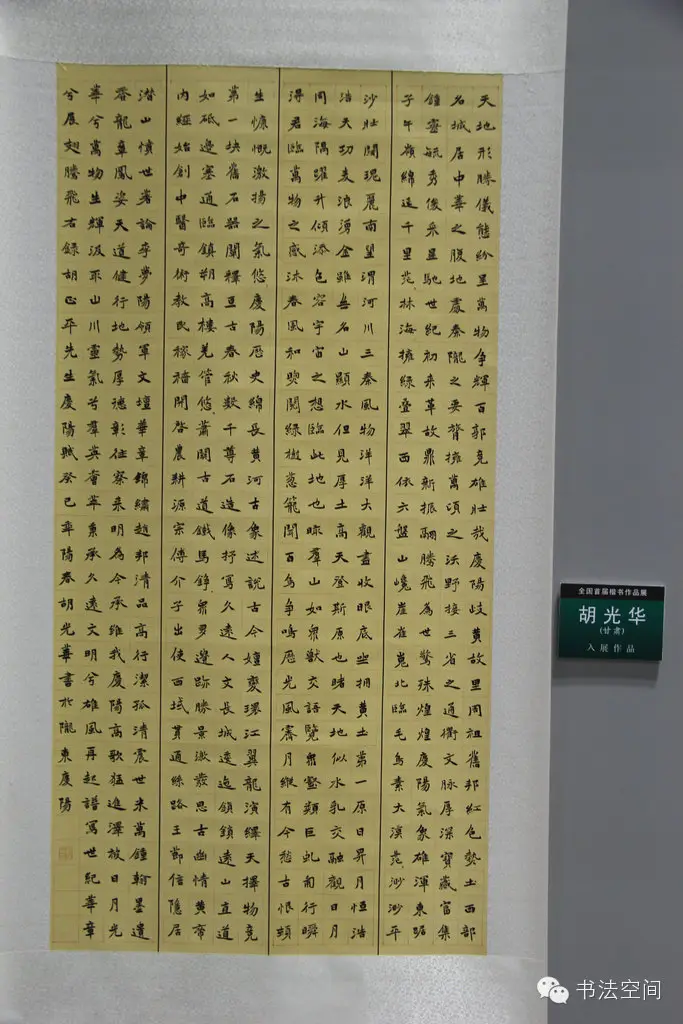 天地形勝儀態紛呈萬物争輝百郭竞雄壯哉慶陽岐黄故里周祖舊邦紅色勢土西部
名城居中華之腹地處秦隴之要膂擁萬頃之沃野接三省之通衢文脉厚深寶藏富集
鍾靈毓秀俊采星馳世紀初来革故鼎新振翮騰飛為世驚殊煌煌慶陽氣象雄渾東踞
子午嶺綿延千里茫林海擁緑叠翠西依六盤山巉崖崔嵬北臨毛烏素大漠茫渺渺平
沙壮闊瑰麗南望渭河川三秦風物洋洋大觀盡收眼底坐拥黄土第一原日昇月恒浩
浩天功麦浪湧金雖無名山顯水但見厚土高天登斯原也睹天地似水乳交融觀日月
同海隅躍升傾添色容宇宙之想臨此地也眺羣山如衆獸交語覽衆壑類巨虬匍行瞬
得君臨萬物之感沐春風和煦閲緑樹葱籠聞百鸟争鳴歷光風霽月縱有今愁古恨頓
生慷慨激揚之氣悠慶陽歷史綿長黄河古象述説古今嬗变環江翼龍演繹天擇物竞
第一块舊石器闡釋亘古春秋数千尊石造像抒寫久遠人文長城逶迤領鎖遠山直道
如砥邊塞通臨鎮朔高樓羌管悠蕭關古道鐵馬錚衆多邊跡勝景激發思古幽情黄帝
内經始創中醫奇術教民稼穡開啓農耕源宗傅介子出使西域貫通絲路王鄯信隱居
潜山愤世著論李夢陽領軍文壇華章錦繡趙邦清品高行潔孤清震世米萬鍾翰墨遺
香龍章鳳姿天道健行地勢厚德彰往察来明為今承维我慶陽高歌猛進澤被日月光
華兮萬物生輝汲取山川靈氣兮羣英薈萃秉承久遠文明兮雄風再起譜寫世紀華章
兮展翅騰飛右録胡正平先生慶陽賦癸巳年陽春胡光華書於隴東慶陽
全国首届楷书作品展
胡光华
(甘肃)
入展作品
书法空间